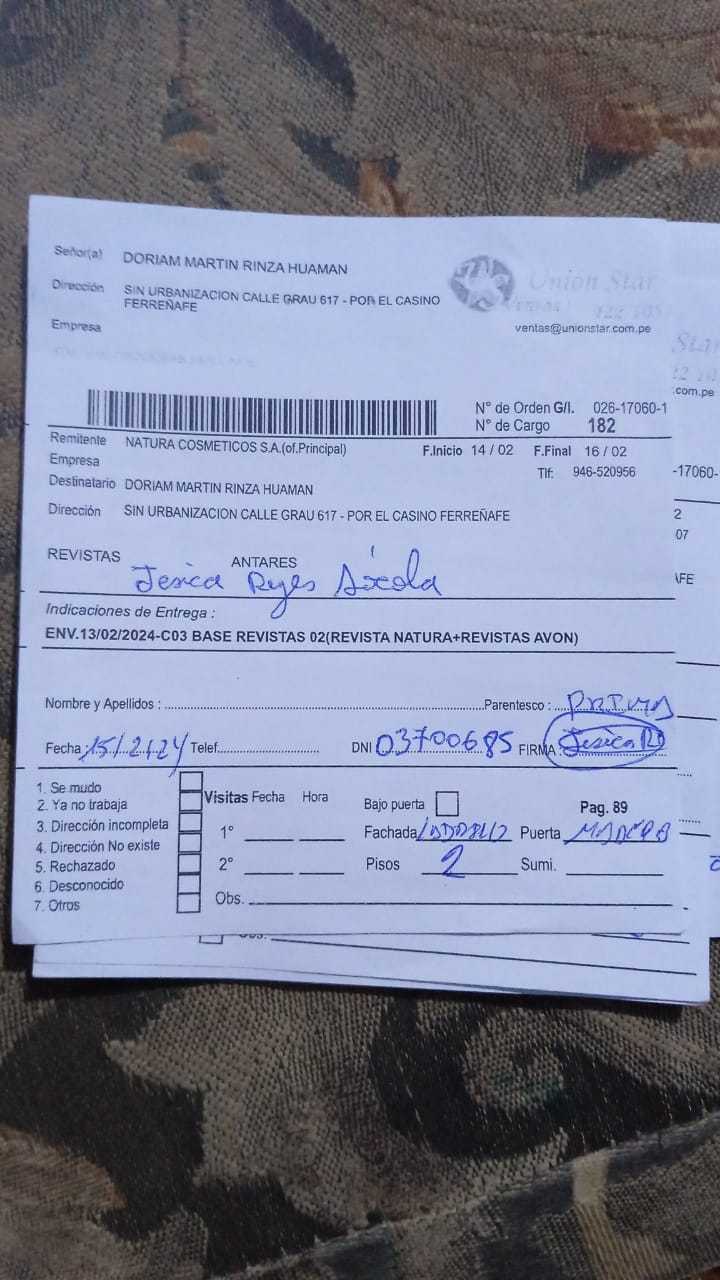 Señor(a) DORIAM MARTIN RINZA HUAMAN
Dirección SIN URBANIZACION CALLE GRAU 617 - POR EL CASINO
FERREÑAFE
Empresa
Union Star
ventas@unionstar.com.pe
N° de Orden G/I. 026-17060-1
N° de Cargo 182
Remitente NATURA COSMETICOS S.A.(of.Principal) F.Inicio 14 / 02 F.Final 16 / 02
Empresa Tlf: 946-520956
Destinatario DORIAM MARTIN RINZA HUAMAN
Dirección SIN URBANIZACION CALLE GRAU 617 - POR EL CASINO FERREÑAFE
REVISTAS ANTARES
Jesica Reyes
Indicaciones de Entrega :
ENV.13/02/2024-C03 BASE REVISTAS 02(REVISTA NATURA+REVISTAS AVON)
Nombre y Apellidos : Parentesco : PRIMA
Fecha 15/2/24 Telef. DNI 03700685 FIRMA Jesica R
1. Se mudo
2. Ya no trabaja
3. Dirección incompleta
4. Dirección No existe
5. Rechazado
6. Desconocido
7. Otros
Visitas Fecha Hora Bajo puerta Pag. 89
1° Fachada Puerta MADERA
2° Pisos 2 Sumi.
Obs.
Star
.com.pe
-17060-
2
07
AFE